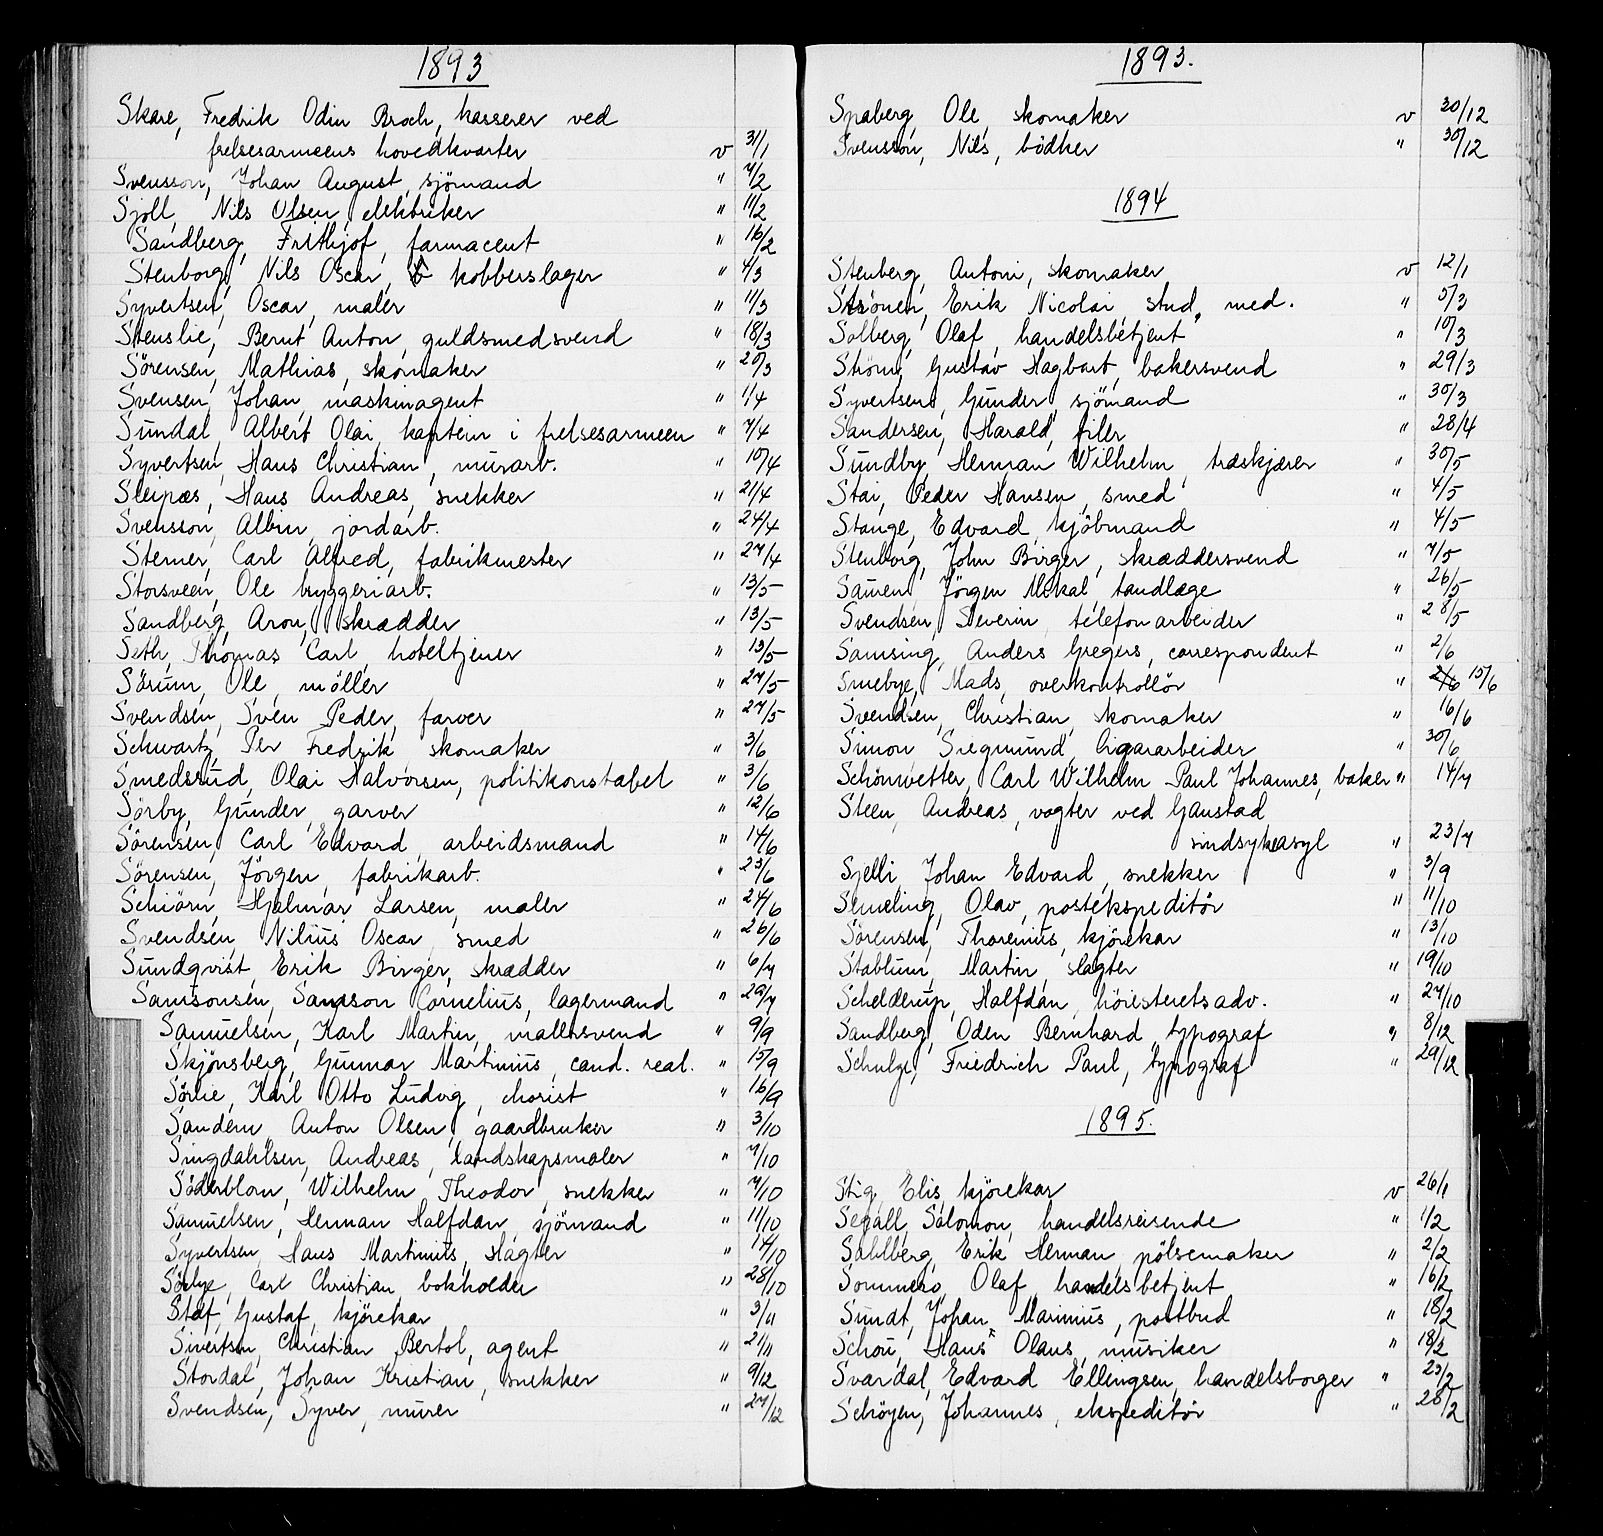 1893
Skare, Fredrik Odin Broch, kasserer ved
frelsesarmeens hovedkvarter v 31/1
Svensson, Johan August, sjömand " 7/2
Sjöll, Nils Olsen, elektriker " 11/2
Sandberg, Frithjof, farmaceut " 16/2
Stenborg, Nils Oscar, kobberslager " 4/3
Syvertsen, Oscar, maler " 11/3
Stenslie, Bernt Anton, guldsmedsvend " 18/3
Sörensen, Mathias, skomaker " 20/3
Svensen, Johan, maskinagent " 1/4
Sundal, Albert Olai, kaptein i frelsesarmeen " 7/4
Syvertsen, Hans Christian, murarb. " 10/4
Sleipæs, Hans Andreas, snekker " 21/4
Svensson, Albin, jordarb. " 24/4
Sterner, Carl Alfred, fabrikmester " 27/4
Storsveen, Ole bryggeriarb. " 13/5
Sandberg, Aron, skrædder " 13/5
Seth, Thomas Carl, hoteltjener " 13/5
Sörum, Ole, möller " 27/5
Svendsen, Sven Peder, farver " 27/5
Schwartz, Per Fredrik skomaker " 3/6
Smedsrud, Olai Halvorsen, politikonstabel " 3/6
Sörby, Gunder, garver " 12/6
Sörensen, Carl Edvard, arbeidsmand " 14/6
Sörensen, Jörgen, fabrikarb. " 23/6
Schiörn, Hjalmar Larsen, maler " 24/6
Svendsen, Nilius Oscar, smed " 26/6
Sundqvist, Erik Birger, skrædder " 6/7
Samsonsen, Samson Cornelius, lagermand " 29/7
Samuelsen, Karl Martin, malersvend " 9/9
Skjönsberg, Gunnar Martinius, cand. real. " 15/9
Sörlie, Karl Otto Ludvig, chorist " 16/9
Sandem, Anton Olsen, gaardbruker " 3/10
Singdahlsen, Andreas, landskapsmaler " 7/10
Söderblom, Wilhelm Theodor, snekker " 7/10
Samuelsen, Herman Halfdan, sjömand " 11/10
Syvertsen, Hans Martinius, slagter " 14/10
Sörlye, Carl Christian, bokholder " 28/10
Staf, Gustaf, kjörekar " 3/11
Sivertsen, Christian Bertol, agent " 21/11
Stordal, Johan Kristian, snekker " 9/12
Svendsen, Syver, murer " 27/12
1893.
Spaberg, Ole, skomaker v 30/12
Svensson, Nils, bödker " 30/12
1894
Stenberg, Antoni, skomaker v 12/1
Strönen, Erik Nicolai, stud. med. " 5/3
Solberg, Olaf, handelsbetjent " 10/3
Ström, Gustav Hagbart, bakersvend " 29/3
Syvertsen, Gunder, sjömand " 30/3
Sandersen, Harald, filer " 28/4
Sundby, Herman Wilhelm, træskjærer " 30/5
Stai, Peder Hansen, smed " 4/5
Stange, Edvard, kjöbmand " 4/5
Stenborg, John Birger, skræddersvend " 7/5
Sauren, Jörgen Mekal, tandlæge " 26/5
Svendsen, Severin, telefonarbeider " 28/5
Samsing, Anders Gregers, correspondent " 2/6
Smebye, Mads, overkontrollör " 2/6 15/6
Svendsen, Christian, skomaker " 16/6
Simon Siegmund, Cigararbeider " 30/6
Schönwetter, Carl Wilhelm Paul Johannes, baker " 14/7
Steen, Andreas, vogter ved Gaustad
sindsykeasyl " 23/7
Sjelli, Johan Edvard, snekker " 3/9
Semeling, Olav, postekspeditör " 11/10
Sörensen, Thorenius, kjörekar " 13/10
Stablum, Martin, slagter " 19/10
Schelderup, Halfdan, höiesteretsadv. " 27/10
Sandberg, Oden Bernhard, typograf " 8/12
Schulze, Friedrich Paul, typograf " 29/12
1895.
Stig, Elis, kjörekar v 26/1
Segall, Salomon, handelsreisende " 1/2
Sahlberg, Erik Herman, pölsemaker " 2/2
Sommero, Olaf, handelsbetjent " 16/2
Sundt, Johan Marinius, postbud " 18/2
Schou, Hans Olaus, musiker " 18/2
Svardal, Edvard Ellingsen, handelsborger " 23/2
Schöyen, Johannes, ekspeditör " 28/2